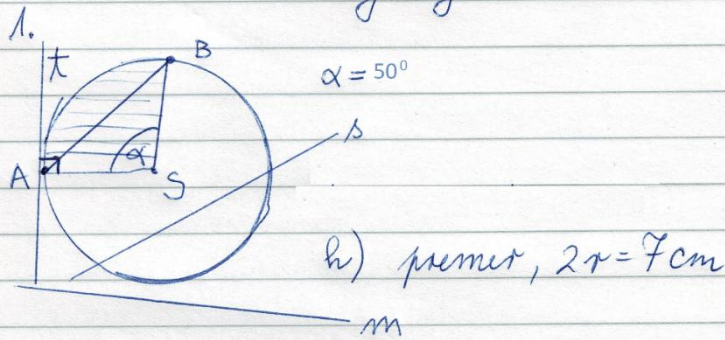 1.
t
B
α = 50°
s
A
α
S
h) premer, 2r = 7 cm
m